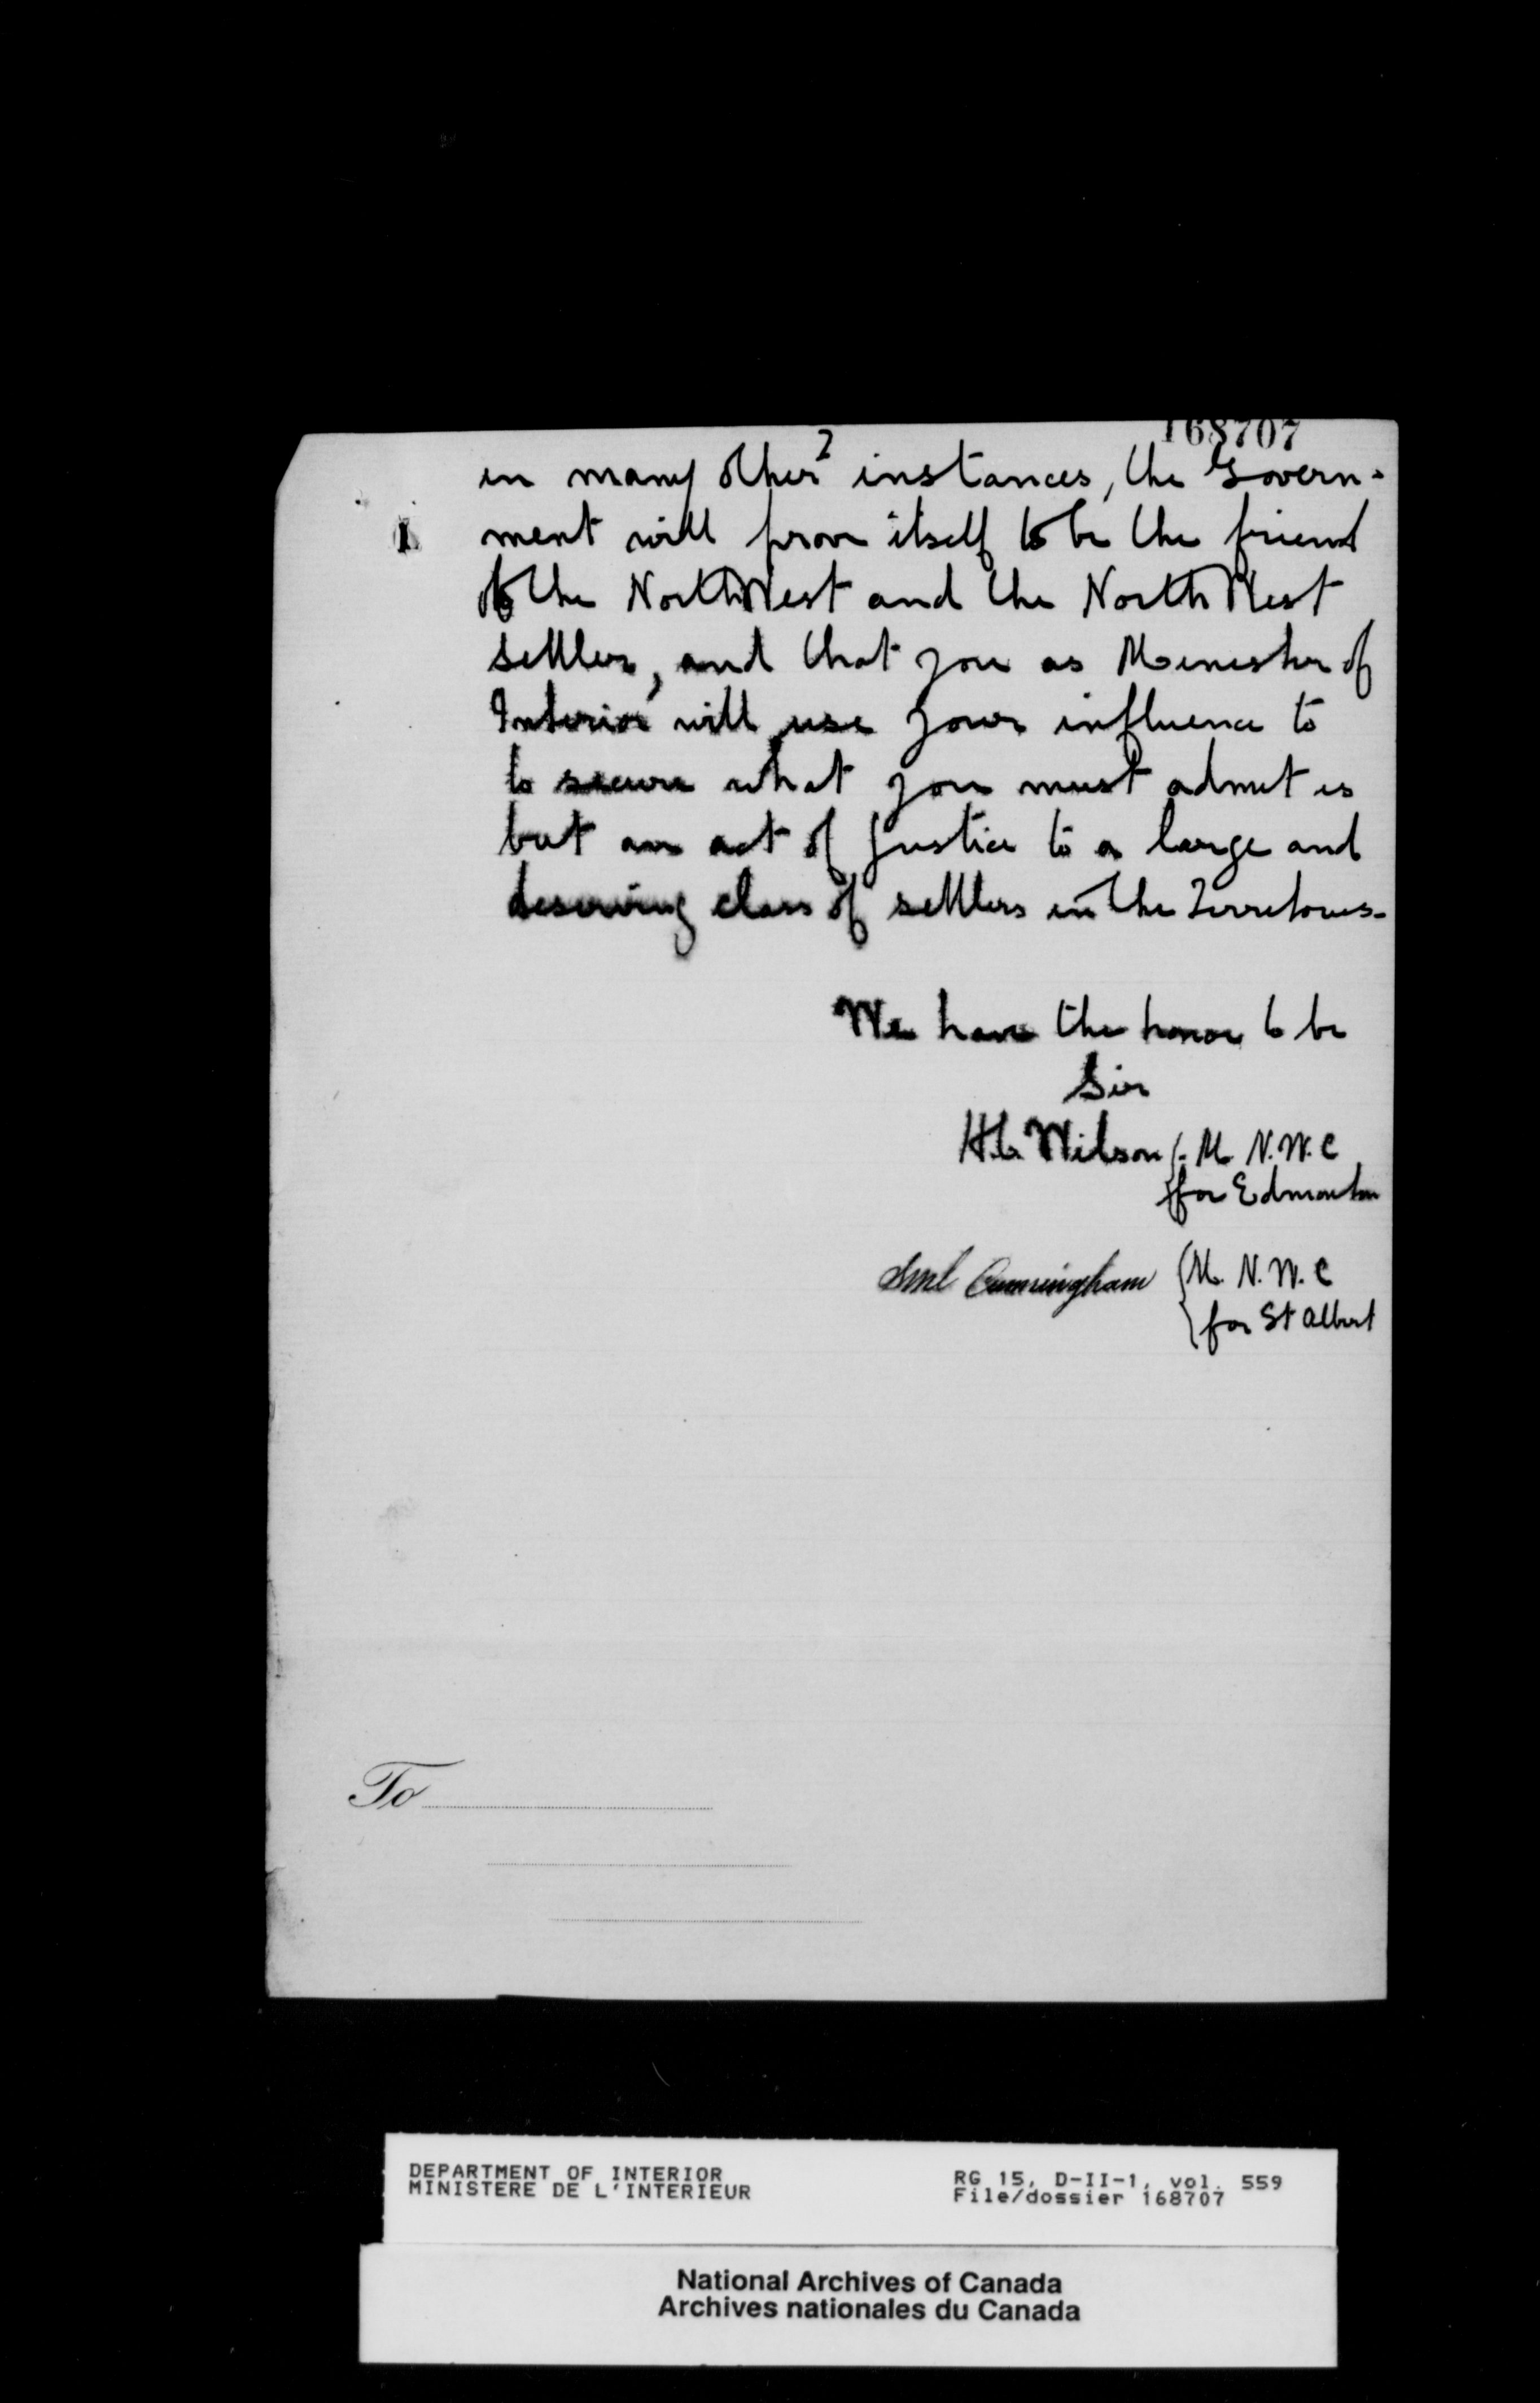 168707
2
in many other instances, the Govern-
ment will prove itself to be the friend
of the North West and the North West
settler, and that you as Minister of
Interior will use your influence to
to secure what you must admit is
but an act of justice to a large and
deserving class of settlers in the Territories-
We have the honor to be
Sir
H.C. Wilson M N.W.C
for Edmonton
Saml Cunningham M. N.W.C
for St Albert
To
DEPARTMENT OF INTERIOR
MINISTERE DE L'INTERIEUR
RG 15, D-II-1, vol. 559
File/dossier 168707
National Archives of Canada
Archives nationales du Canada